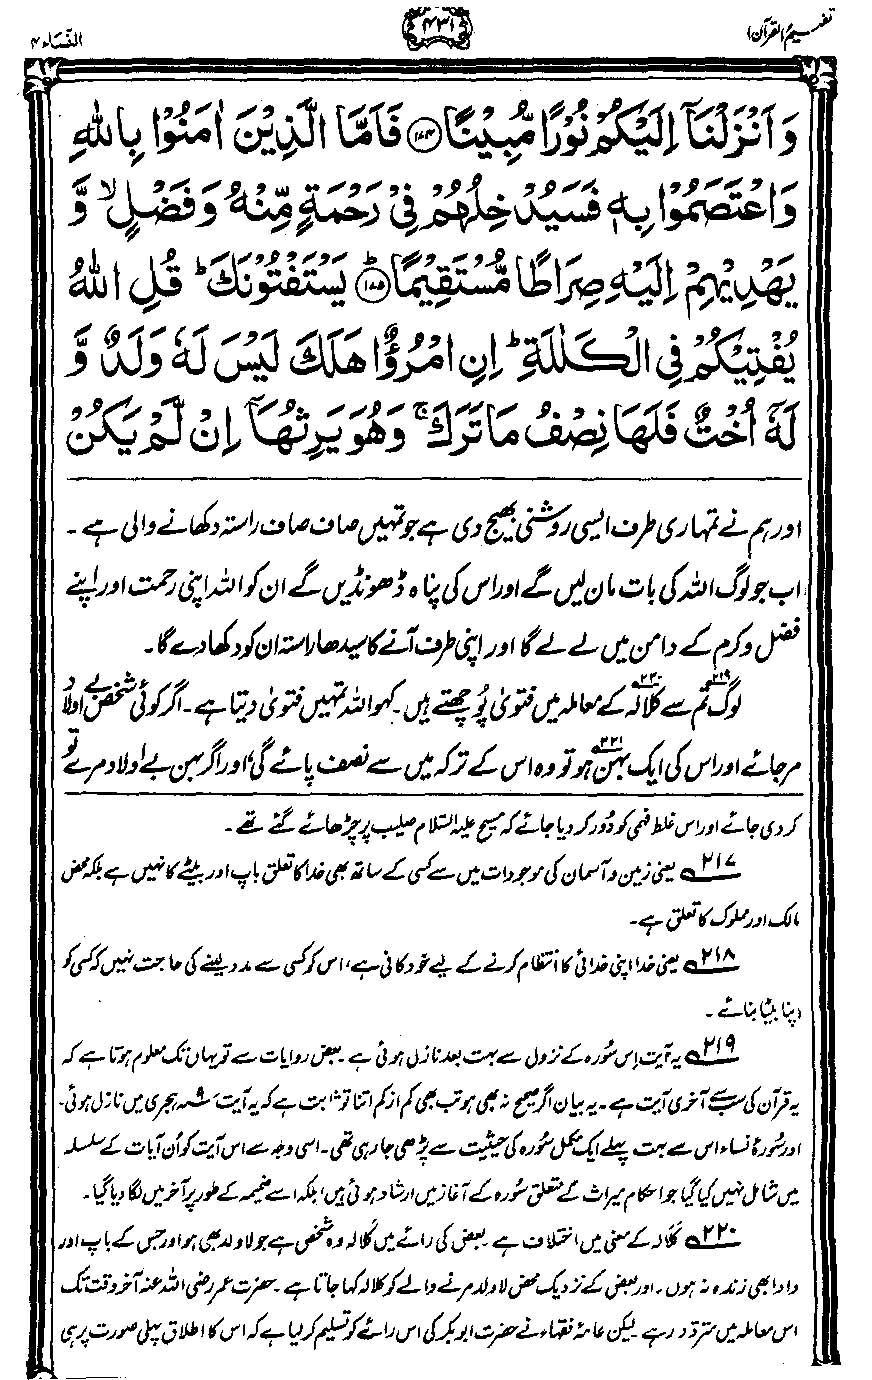 تفہیم القرآن ۱
۴۳۱
النساء ۴
وَاَنْزَلْنَاۤ اِلَيْكُمْ نُوْرًا مُّبِيْنًا ﴿۱۷۴﴾ فَاَمَّا الَّذِيْنَ اٰمَنُوْا بِاللّٰهِ
وَاعْتَصَمُوْا بِهٖ فَسَيُدْخِلُهُمْ فِيْ رَحْمَةٍ مِّنْهُ وَفَضْلٍ ۙ وَّ
يَهْدِيْهِمْ اِلَيْهِ صِرَاطًا مُّسْتَقِيْمًا ﴿۱۷۵﴾ ؕ يَسْتَفْتُوْنَكَ ؕ قُلِ اللّٰهُ
يُفْتِيْكُمْ فِي الْكَلٰلَةِ ؕ اِنِ امْرُؤٌا هَلَكَ لَيْسَ لَهٗ وَلَدٌ وَّ
لَهٗۤ اُخْتٌ فَلَهَا نِصْفُ مَا تَرَكَ ۚ وَهُوَ يَرِثُهَاۤ اِنْ لَّمْ يَكُنْ
اور ہم نے تمہاری طرف ایسی روشنی بھیج دی ہے جو تمہیں صاف صاف راستہ دکھانے والی ہے۔
اب جو لوگ اللہ کی بات مان لیں گے اور اس کی پناہ ڈھونڈیں گے ان کو اللہ اپنی رحمت اور اپنے
فضل و کرم کے دامن میں لے لے گا اور اپنی طرف آنے کا سیدھا راستہ ان کو دکھا دے گا۔
لوگ تم سے ۲۱۹ کلالہ ۲۲۰ کے معاملہ میں فتویٰ پوچھتے ہیں۔ کہو اللہ تمہیں فتویٰ دیتا ہے۔ اگر کوئی شخص بے اولاد
مر جائے اور اس کی ایک بہن ۲۲۱ ہو تو وہ اس کے ترکہ میں سے نصف پائے گی، اور اگر بہن بے اولاد مرے تو
کر دی جائے اور اس غلط فہمی کو دُور کر دیا جائے کہ مسیح علیہ السلام صلیب پر چڑھائے گئے تھے۔
۲۱۷ یعنی زمین و آسمان کی موجودات میں سے کسی کے ساتھ بھی خدا کا تعلق باپ اور بیٹے کا نہیں ہے بلکہ محض
مالک اور مملوک کا تعلق ہے۔
۲۱۸ یعنی خدا اپنی خدائی کا انتظام کرنے کے لیے خود کافی ہے، اس کو کسی سے مدد لینے کی حاجت نہیں کہ کسی کو
اپنا بیٹا بنائے۔
۲۱۹ یہ آیت اس سُورہ کے نزول سے بہت بعد نازل ہوئی ہے۔ بعض روایات سے تو یہاں تک معلوم ہوتا ہے کہ
یہ قرآن کی سب سے آخری آیت ہے۔ یہ بیان اگر صحیح نہ بھی ہو تب بھی کم از کم اتنا تو ثابت ہے کہ یہ آیت ۹ سہ ہجری میں نازل ہوئی۔
اور سُورۂ نساء اس سے بہت پہلے ایک مکمل سُورہ کی حیثیت سے پڑھی جا رہی تھی۔ اسی وجہ سے اس آیت کو اُن آیات کے سلسلہ
میں شامل نہیں کیا گیا جو احکام میراث کے متعلق سُورہ کے آغاز میں ارشاد ہوئی ہیں، بلکہ اسے ضمیمہ کے طور پر آخر میں لگا دیا گیا۔
۲۲۰ کلالہ کے معنی میں اختلاف ہے۔ بعض کی رائے میں کلالہ وہ شخص ہے جو لا ولد بھی ہو اور جس کے باپ اور
دادا بھی زندہ نہ ہوں۔ اور بعض کے نزدیک محض لا ولد مرنے والے کو کلالہ کہا جاتا ہے۔ حضرت عمر رضی اللہ عنہ آخر وقت تک
اس معاملہ میں متردد رہے۔ لیکن عامۂ فقہاء نے حضرت ابوبکر کی اس رائے کو تسلیم کر لیا ہے کہ اس کا اطلاق پہلی صورت پر ہی